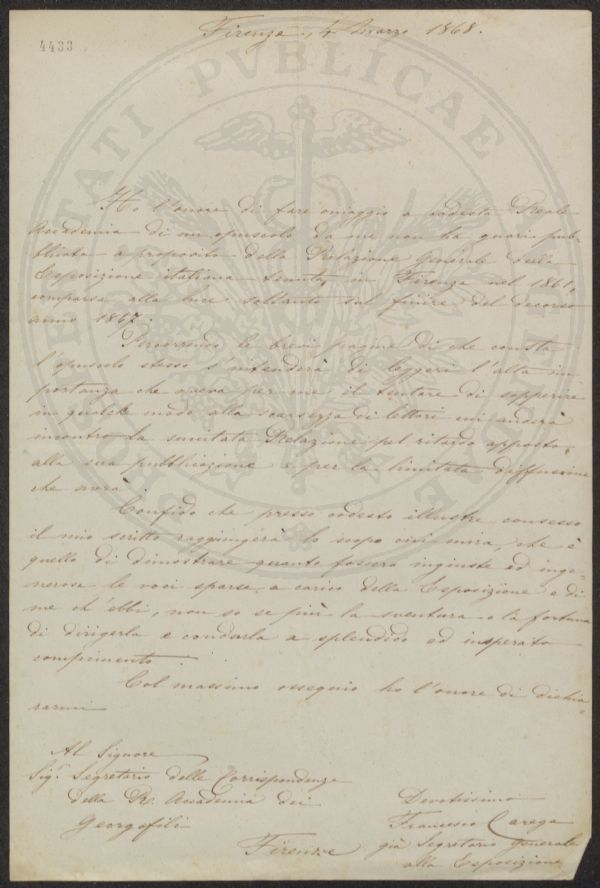 Firenze, 4 Marzo 1868.
4433
PROSPERITATI PVBLICAE
Ho l'onore di fare omaggio a codesta Reale
Accademia di un opuscolo da me non ha guari pub-
blicato a proposito della Relazione Generale della
Esposizione italiana tenuta in Firenze nel 1861,
comparsa alla luce soltanto sul finire del decorso
anno 1867.
Percorrendo le brevi pagine di che consta
l'opuscolo stesso s'intenderà di leggeri l'alta im
portanza che aveva per me il tentare di sopperire
in qualche modo alla scarsezza di lettori cui andrà
incontro la suucitata Relazione pel ritardo apposto
alla sua pubblicazione e per la limitata diffusione
che avrà.
Confido che presso codesto illustre consesso
il mio scritto raggiungerà lo scopo cui mira, che è
quello di dimostrare quanto fossero ingiuste ed inge-
nerose le voci sparse a carico della Esposizione e di
me ch'ebbi, non so se più la sventura o la fortuna
di dirigerla e condurla a splendido ed insperato
compimento.
Col massimo ossequio ho l'onore di dichia-
rarmi
Al Signore
Sig. Segretario delle Corrispondenze
della R. Accademia dei
Georgofili
Firenze
Devotissimo
Francesco Carega
già Segretario Generale
alla Esposizione